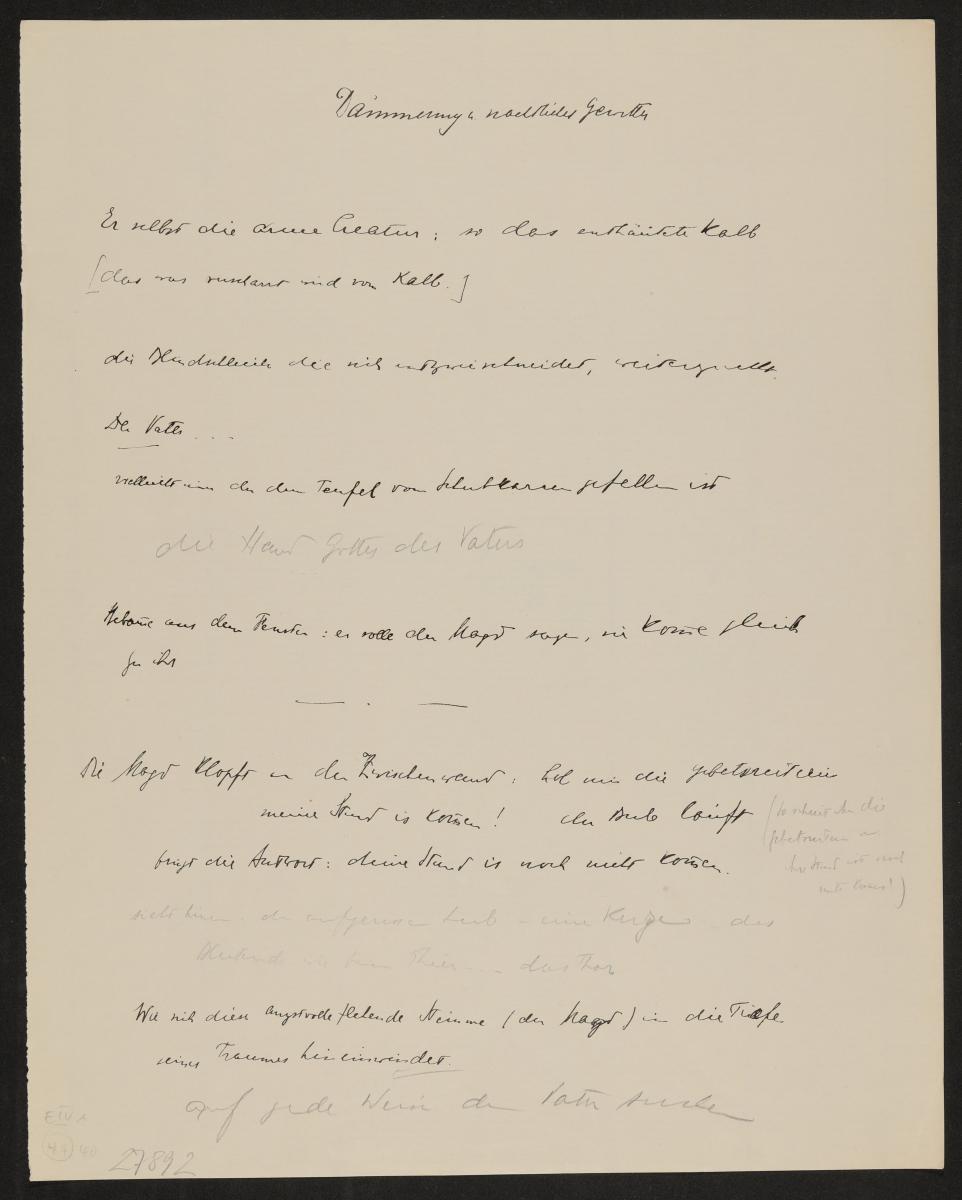 Dämmerung u. nächtliches Gewitter
Er selbst die arme Creatur; so das enthäutete Kalb
[das was wird vom Kalb.]
die Blindschleiche die sich entzweischneidet,
Der Vater ...
vielleicht der dem Teufel vom Schubkarren gefallen ist
die Hand Gottes des Vaters
Hebame aus dem Fenster: er solle der Magd sagen, sie kome gleich
zu ihr
Die Magd klopft an der Zwischenwand: hol mir die
meine Stund is komen! der Bub läuft (so schreit die
bringt die Antwort: deine Stund is noch nicht komen.
Stund ist noch
nicht komen!)
sieht hinein. den aufgerissnen Leib – eine Kerze – das
Blutende wie beim Thier – das Thor
Wie sich diese angstvolle flehende Stimme (der Magd) in die Tiefe
seines Traumes hineinwindet.
auf jede Weise den Vater suchen
E IV 1
49 40
27892